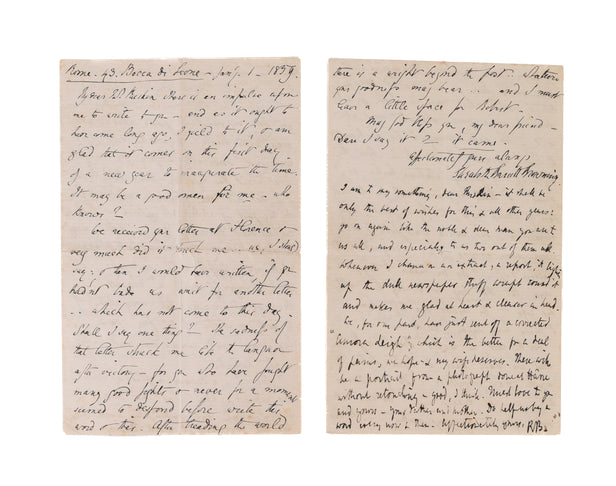 Rome - 43. Bocca di Leone - Jan. 1 - 1859.
My dear Mr Ruskin Here is an impulse upon
me to write to you - and as it ought to
have come long ago, I yield to it, & am
glad that it comes on this first day
of a new year to inaugurate the time.
It may be a good omen for me - who
knows?
We received your letter at Florence &
very much did it touch me - us, I should
say - & then I would have written if you
hadn't bade us wait for another letter
.. which has not come to this day.
Shall I say one thing? The sadness of
that letter struck me like the languor
after victory - for you who have fought
many good fights & never for a moment
seemed to despond before write this
word & this. After treading the world
there is a weight beyond the post. Sixteen
your goodness may bear .. and I must
leave a little space for Robert -
May God bless you, my dear friend -
Dare I say it? it came.
affectionately yours always
Elizabeth Barrett Browning
I am to say something, dear Ruskin - it shall be
only the best of wishes for this & all other years:
go on again like the noble & dear man you are to
us all, and especially to us two out of them all.
Whenever I chance on an extract, a report, it lights
up the dull newspaper stuff wrapt round it
and makes me glad at heart & clearer in head.
We, for our part, have just sent off a corrected
"Aurora Leigh", which is the better for a deal
of pains, we hope - & my wife deserves. There will
be a portrait from a photograph done at Havre
without retouching - good, I think. Truest love to you
and yours - your father and mother. Do help us by a
word every now & then. Affectionately yours, R.B.